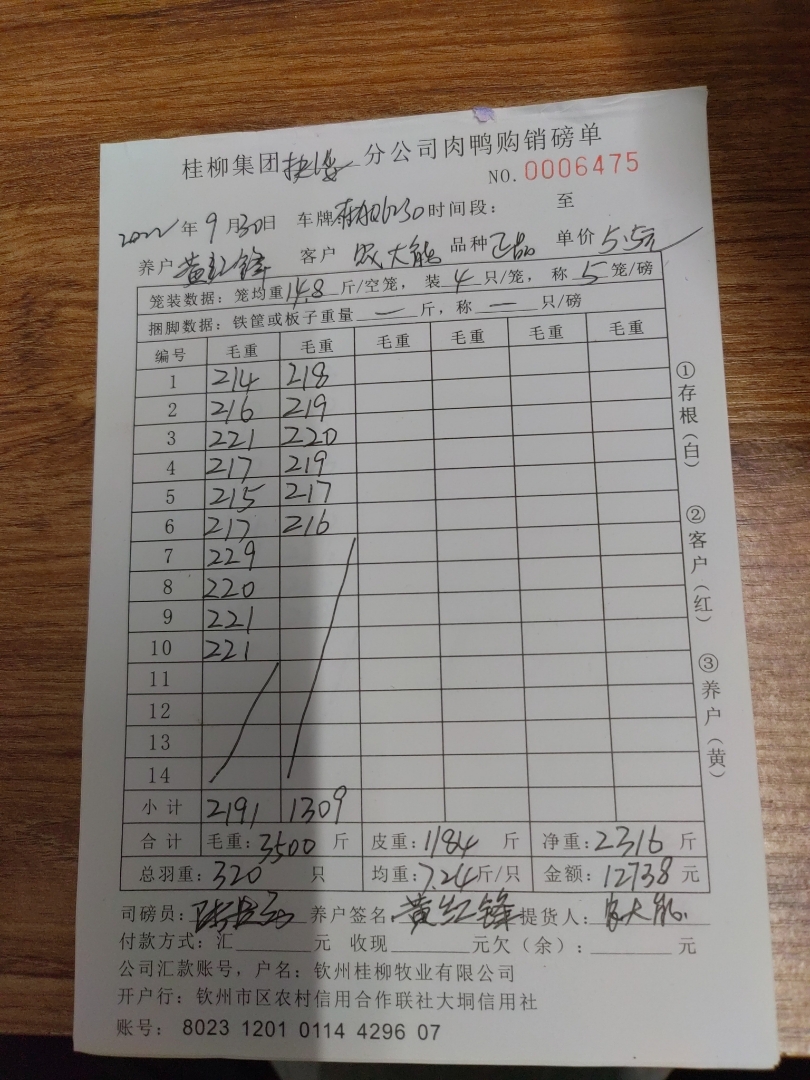 桂柳集团 分公司肉鸭购销磅单
NO. 0006475
2022年9月30日 车牌 时间段： 至
养户 黄红锋 客户 农大能 品种 正品 单价 5.5元
笼装数据：笼均重14.8斤/空笼，装4只/笼，称5笼/磅
捆脚数据：铁筐或板子重量 — 斤，称 — 只/磅
编号 毛重 毛重 毛重 毛重 毛重 毛重
1 214 218
2 216 219
3 221 220
4 217 219
5 215 217
6 217 216
7 229
8 220
9 221
10 221
11
12
13
14
小计 2191 1309
合计 毛重：3500斤 皮重：1184斤 净重：2316斤
总羽重：320只 均重：7.24斤/只 金额：12738元
司磅员： 养户签名 黄红锋 提货人：农大能
付款方式：汇 元 收现 元欠（余）： 元
公司汇款账号，户名：钦州桂柳牧业有限公司
开户行：钦州市区农村信用合作联社大垌信用社
账号：8023 1201 0114 4296 07
①存根（白）
②客户（红）
③养户（黄）